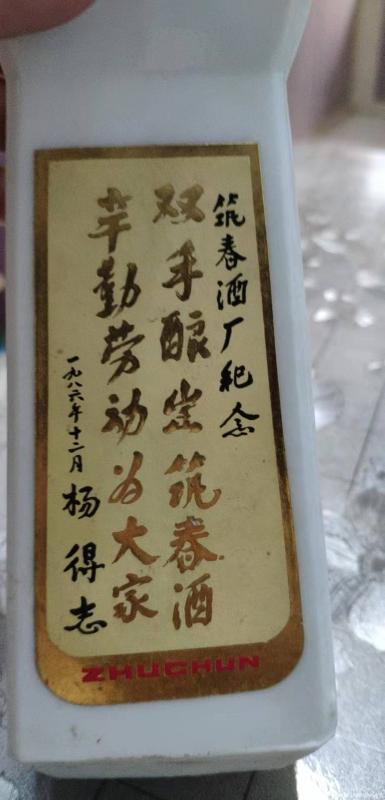 筑春酒厂纪念
双手酿出筑春酒
辛勤劳动为大家
一九八六年十二月
杨得志
ZHUCHUN